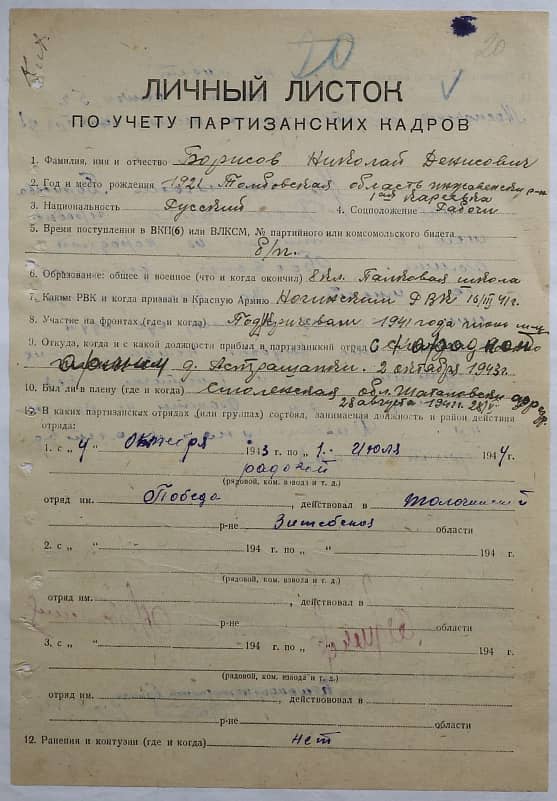 20
ЛИЧНЫЙ ЛИСТОК
ПО УЧЕТУ ПАРТИЗАНСКИХ КАДРОВ
1. Фамилия, имя и отчество Борисов Николай Денисович
2. Год и место рождения 1921 Томбовская область р-н
1ая Кареевка
3. Национальность Русский 4. Соцположение Рабочи
5. Время поступления в ВКП(б) или ВЛКСМ, № партийного или комсомольского билета
б/п.
6. Образование: общее и военное (что и когда окончил) 8 кл. школа
7. Каким РВК и когда призван в Красную Армию Ногинским РВК 16/III 41 г.
8. Участие на фронтах (где и когда) 1941 года июнь м-ц
9. Откуда, когда и с какой должности прибыл в партизанский отряд
д. 2 октября 1943 г.
10. Был ли в плену (где и когда) Смоленская обл.
28 августа 1941 г.
В каких партизанских отрядах (или группах) состоял, занимаемая должность и район действия
отряда:
1. с „ 4 “ Октября 1943 г по „ 1 “ Июля 1944 г.
радовой
(рядовой, ком. взвода и т. д.)
отряд им. Победа, действовал в Толочинский
р-не Витебская области
2. с „ “ 194 г. по „ “ 194 г.
(рядовой, ком. взвода и т. д.)
отряд им. , действовал в
р-не области
3. с „ “ 194 г. по „ “ 194 г.
(рядовой, ком. взвода и т. д.)
отряд им. , действовал в
р-не области
12. Ранения и контузии (где и когда) нет